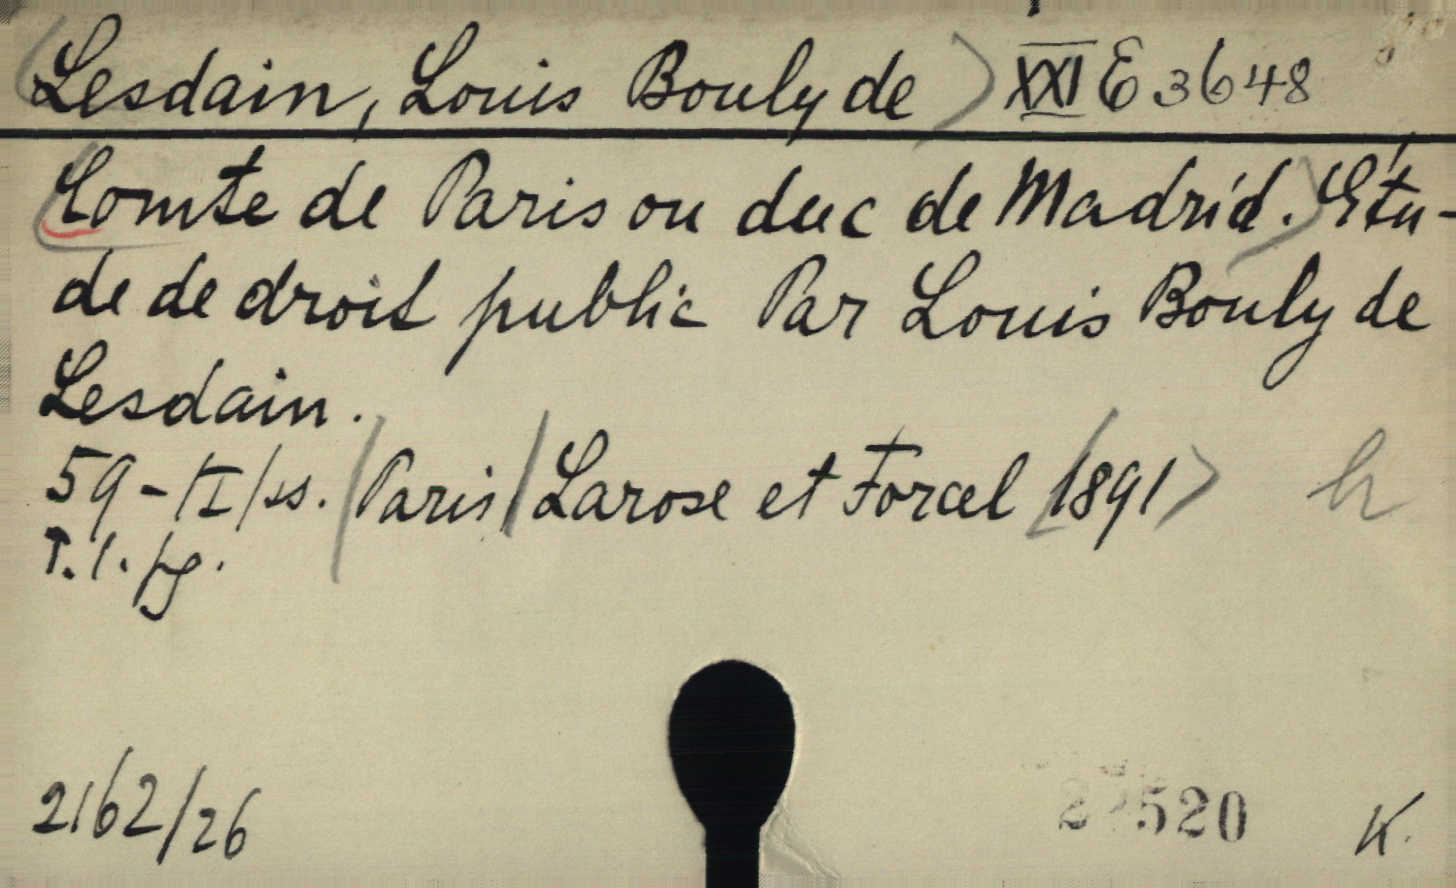 Lesdain, Louis Bouly de XXI E 3648
Comte de Paris ou duc de Madrid. Étu-
de de droit public Par Louis Bouly de
Lesdain.
59-/I/ss. Paris Larose et Forcel 1891 h
P.l. fg.
2162/26
520 K.